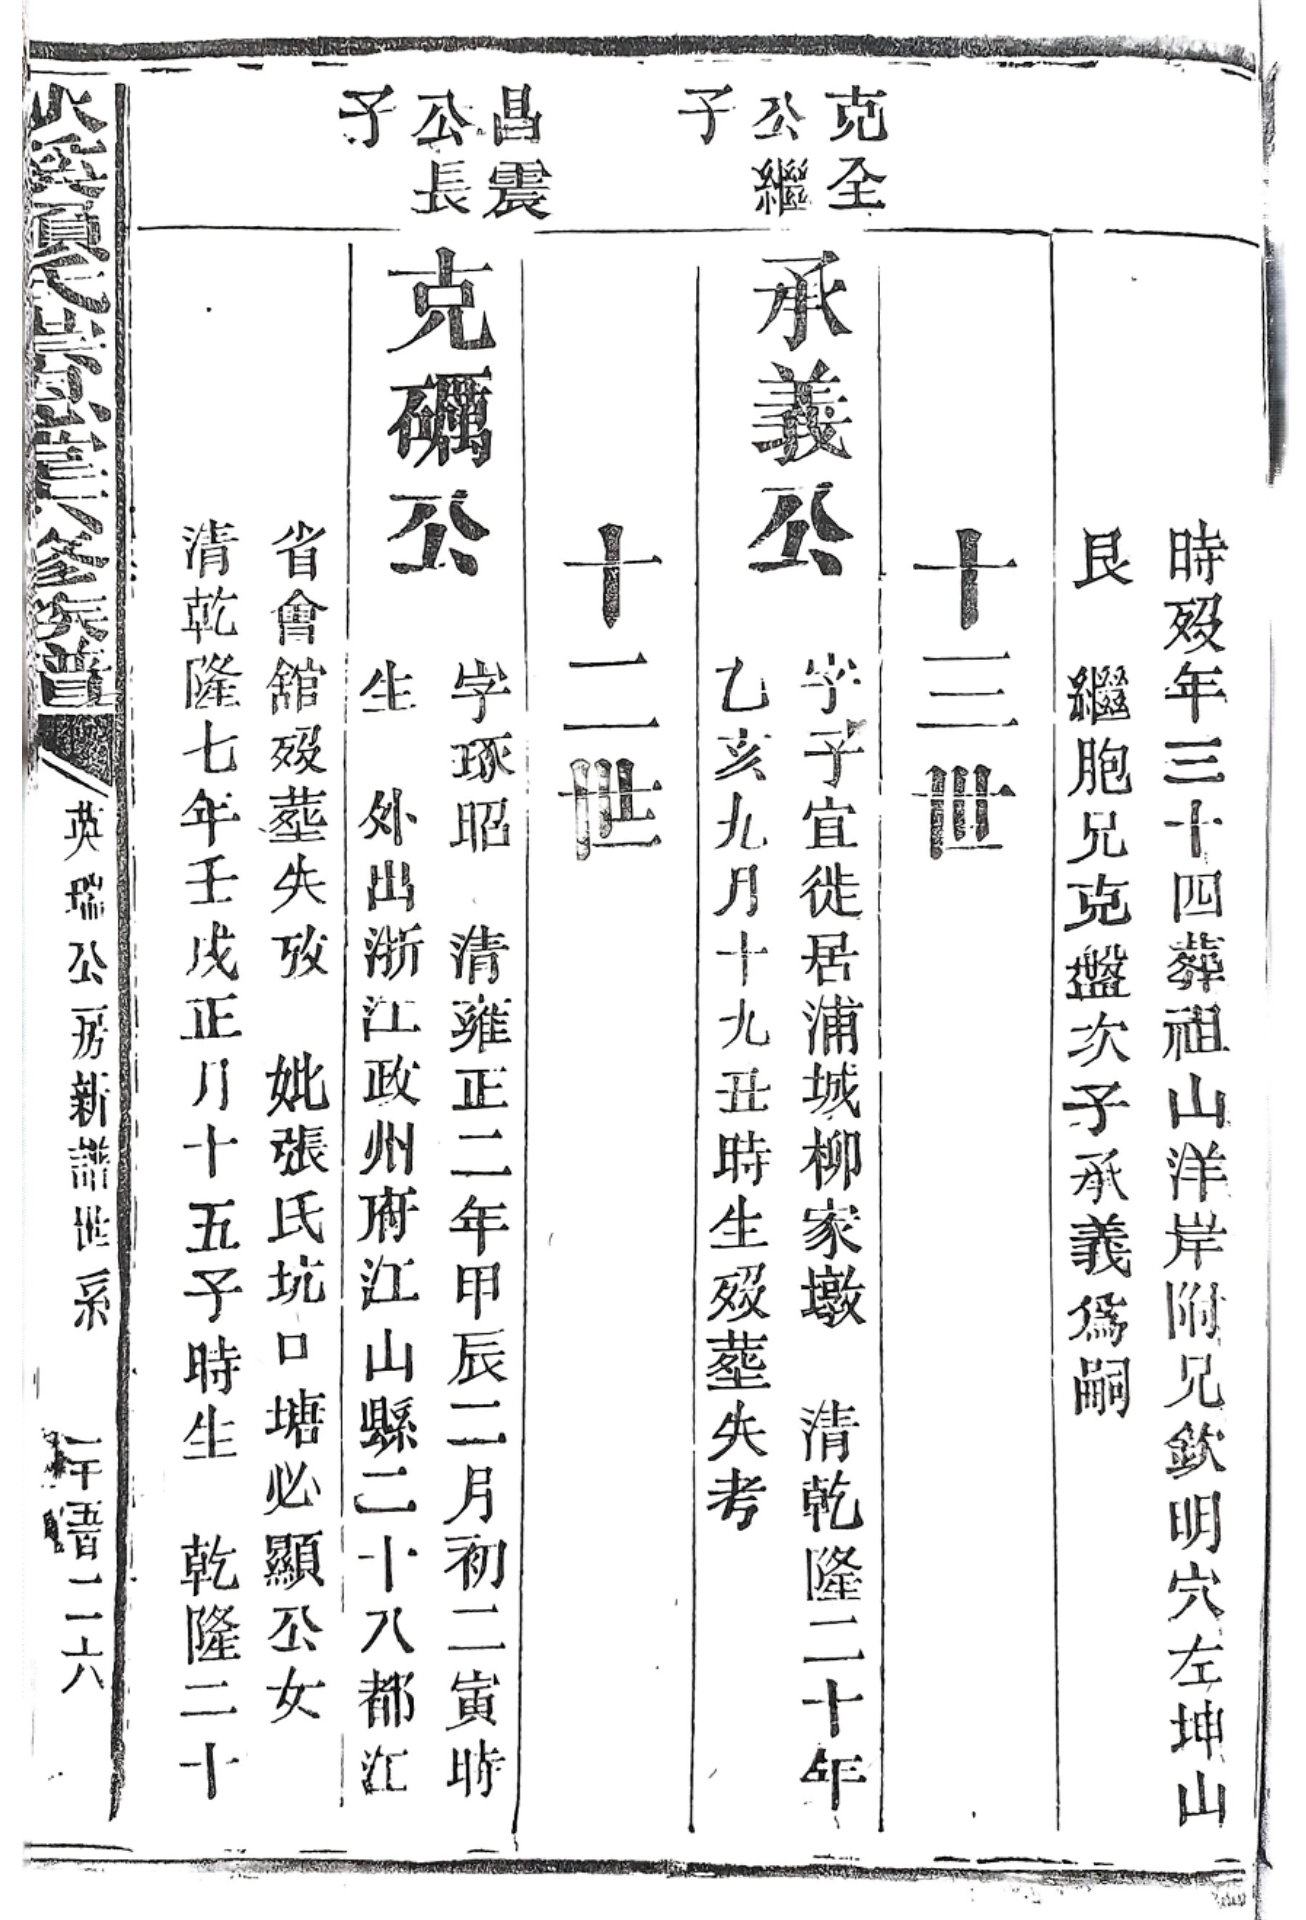 時歿年三十四葬祖山洋岸附兄欽明穴左坤山
艮　繼胞兄克盤次子承義爲嗣
十三世
克全
公繼
子
承義公
字子宜徙居浦城柳家墩　清乾隆二十年
乙亥九月十九丑時生歿塟失考
十二世
昌震
公長
子
克礪公
字琢昭　清雍正二年甲辰二月初二寅時
生　外出浙江政州府江山縣二十八都江
省會舘歿塟失攷　妣張氏坑口塘必顯公女
清乾隆七年壬戌正月十五子時生　乾隆二十
溪項氏崇六修族譜
英瑞公房新譜世系
二六